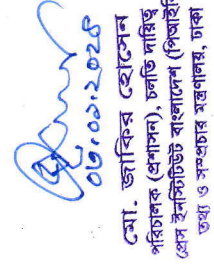 ০৬.০১.২০২৪
মো. জাকির হোসেন
পরিচালক (প্রশাসন), চলতি দায়িত্ব
প্রেস ইনস্টিটিউট বাংলাদেশ (পিআইবি
তথ্য ও সম্প্রচার মন্ত্রণালয়, ঢাকা